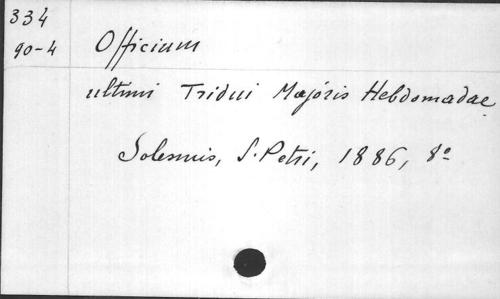 334
90-4
Officium
ultimi Tridui Majoris Hebdomadae
Solesmis, S. Petri, 1886, 8°